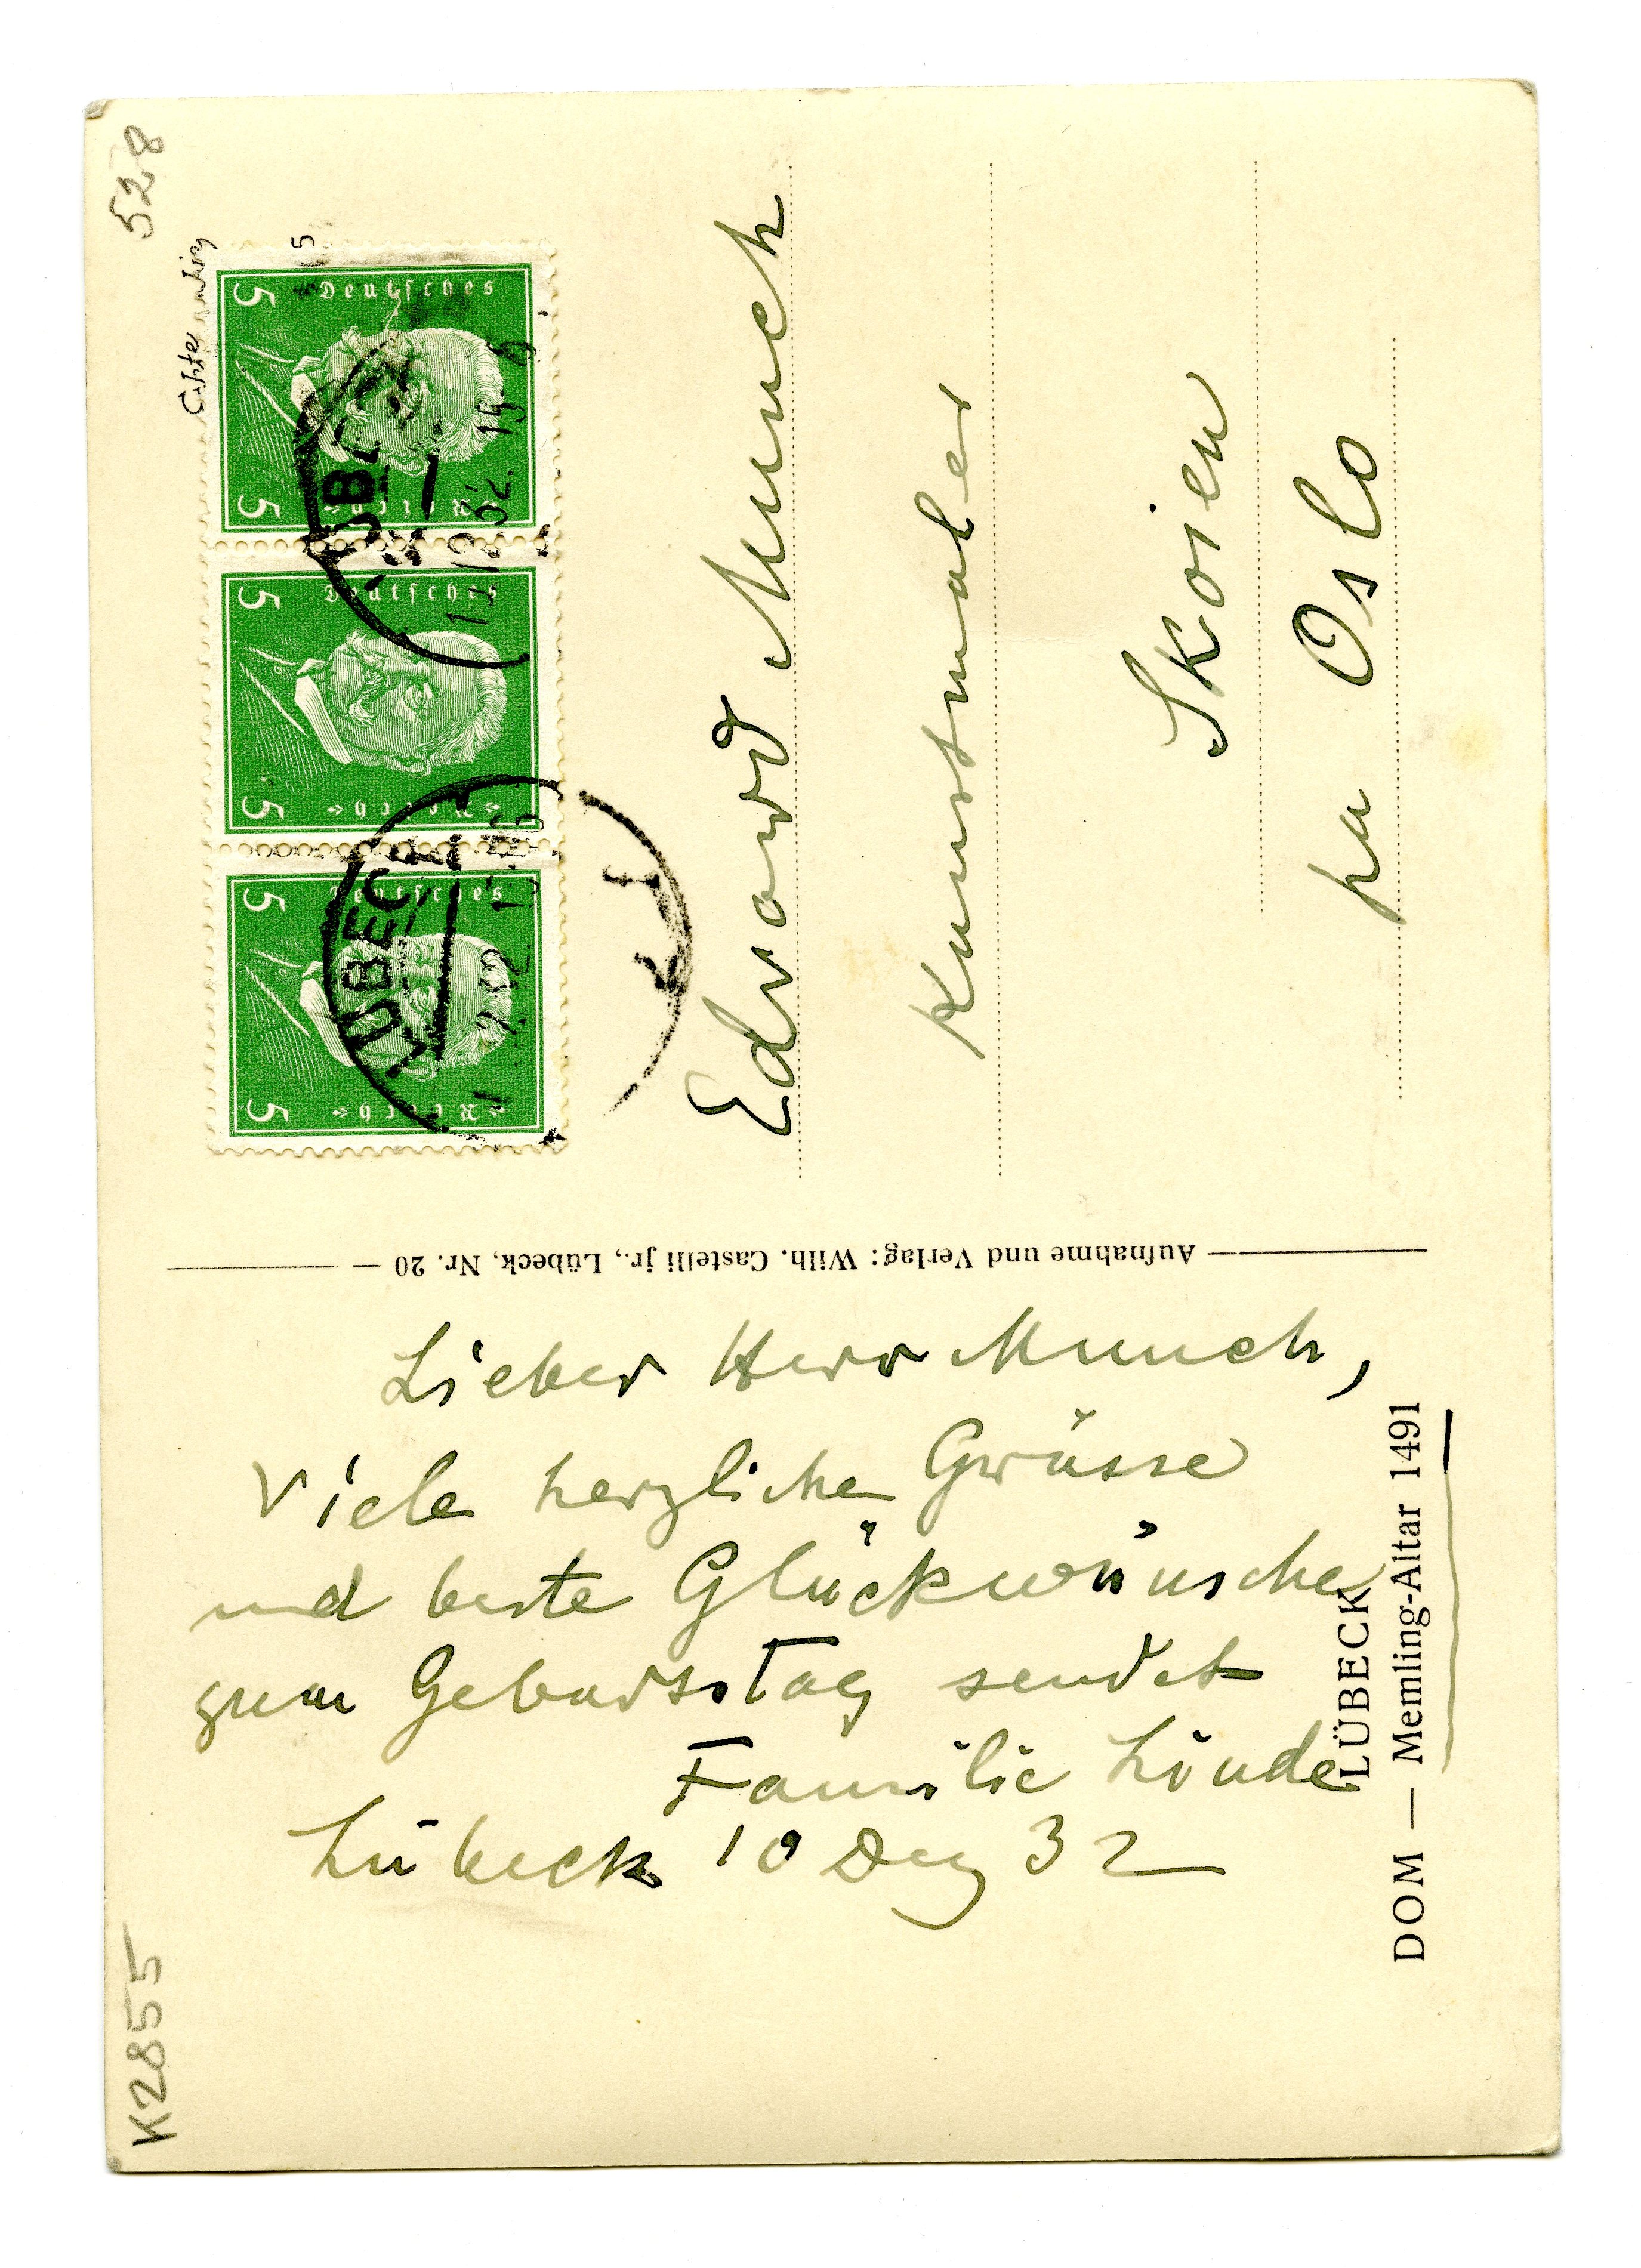 Lieber Herr Munch,
Viele herzliche Grüsse
und beste Glückwünsche
zum Geburstag sendet
Familie Linde
Lübeck 10 Dez 32
LÜBECK
DOM — Memling-Altar 1491
— Aufnahme und Verlag: Wilh. Castelli jr., Lübeck, Nr. 20 —
Edvard Munch
Kunstmaler
Skoien
pa Oslo
5 Deutsches Reich 5
5 Deutsches Reich 5
5 Deutsches Reich 5
LÜBECK
LÜBECK
528
K2855